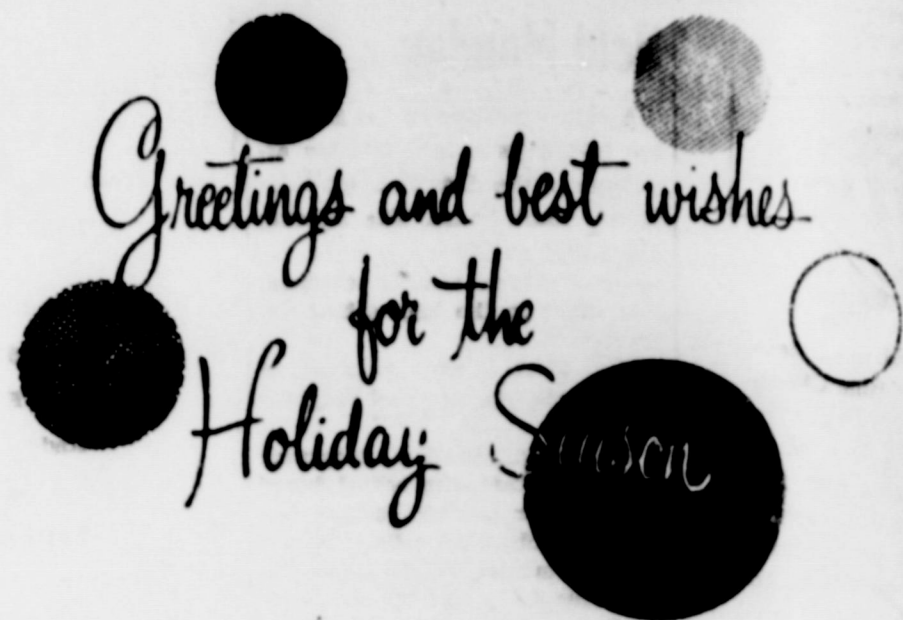 Greetings and best wishes
for the
Holiday Season